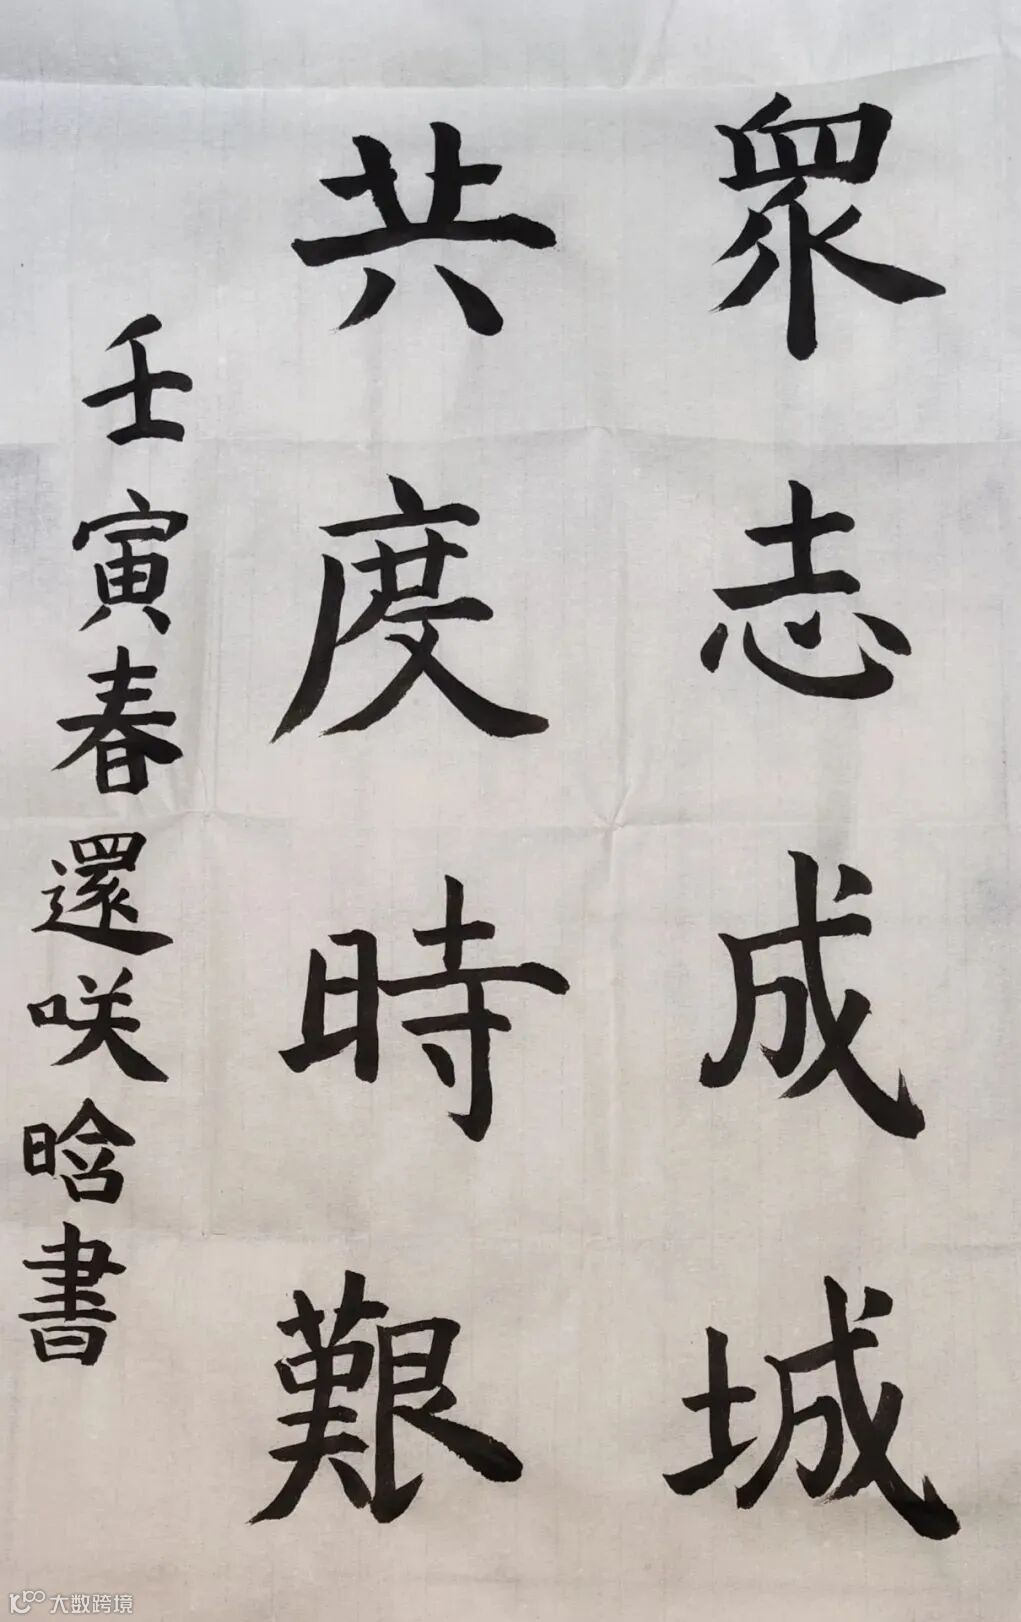 眾志成城
共度時艱
壬寅春還咲晗書
大数跨境